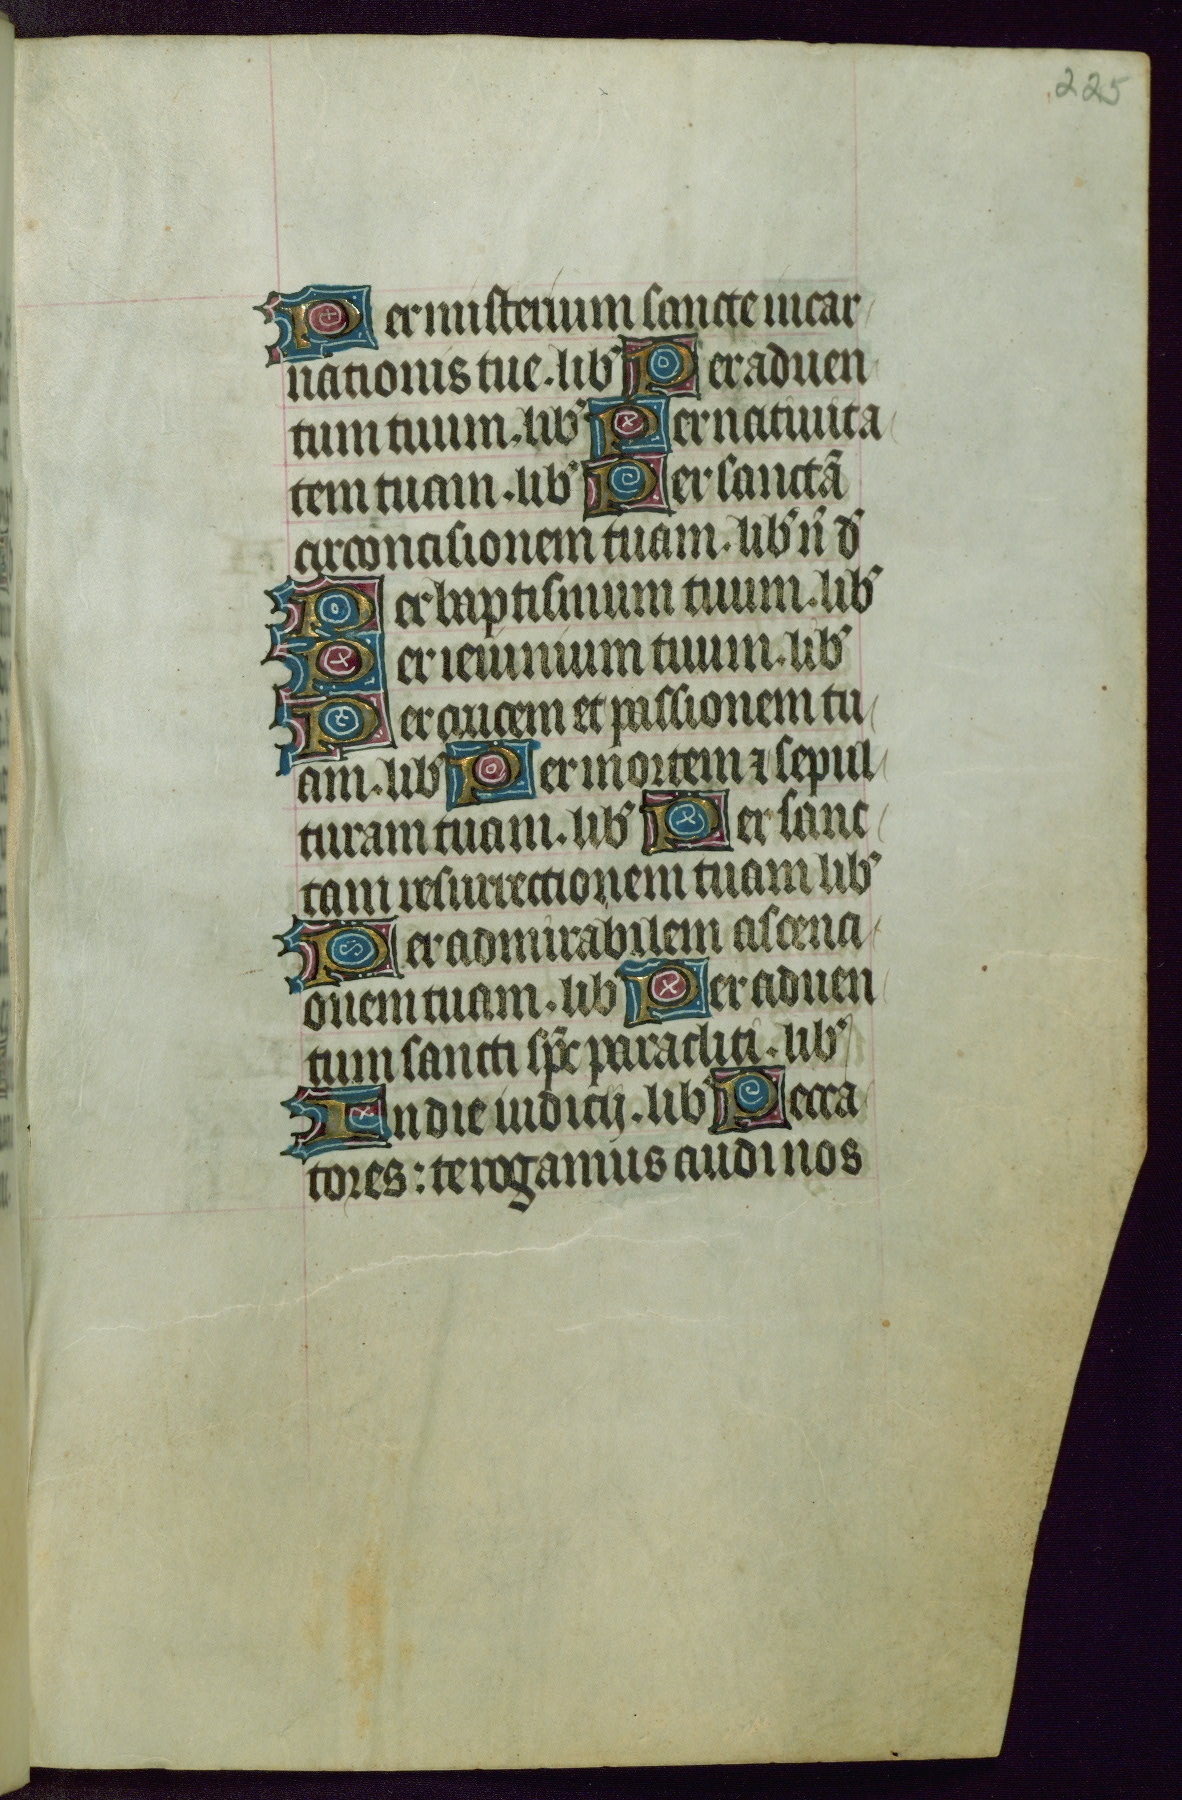 225
Per misterium sancte incar
nationis tue. lib' Per aduen
tum tuum. lib' Per natiuita
tem tuam. lib' Per sanctã
circoncisionem tuam. lib' n̄ d'
Per baptismum tuum. lib'
Per ieiunium tuum. lib'
Per crucem et passionem tu
am. lib' Per mortem ⁊ sepul
turam tuam. lib' Per sanc
tam resurrectionem tuam lib'
Per admirabilem ascenci
onem tuam. lib' Per aduen
tum sancti sp̄c paracliti. lib'
In die iudicij. lib' Pecca
tores: te rogamus audi nos